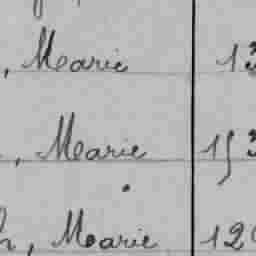 , Marie 13
, Marie 153
h, Marie 120